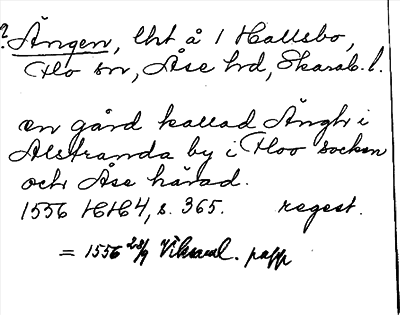 ? Ängen, lht å 1 Hallsbo,
Flo sn, Åse hd, Skarab. l.
en gård kallad Ängh i
Alstranda by i Floo socken
och Åse härad.
1556 HH4, s. 365. regest.
= 1556 28/9 papp